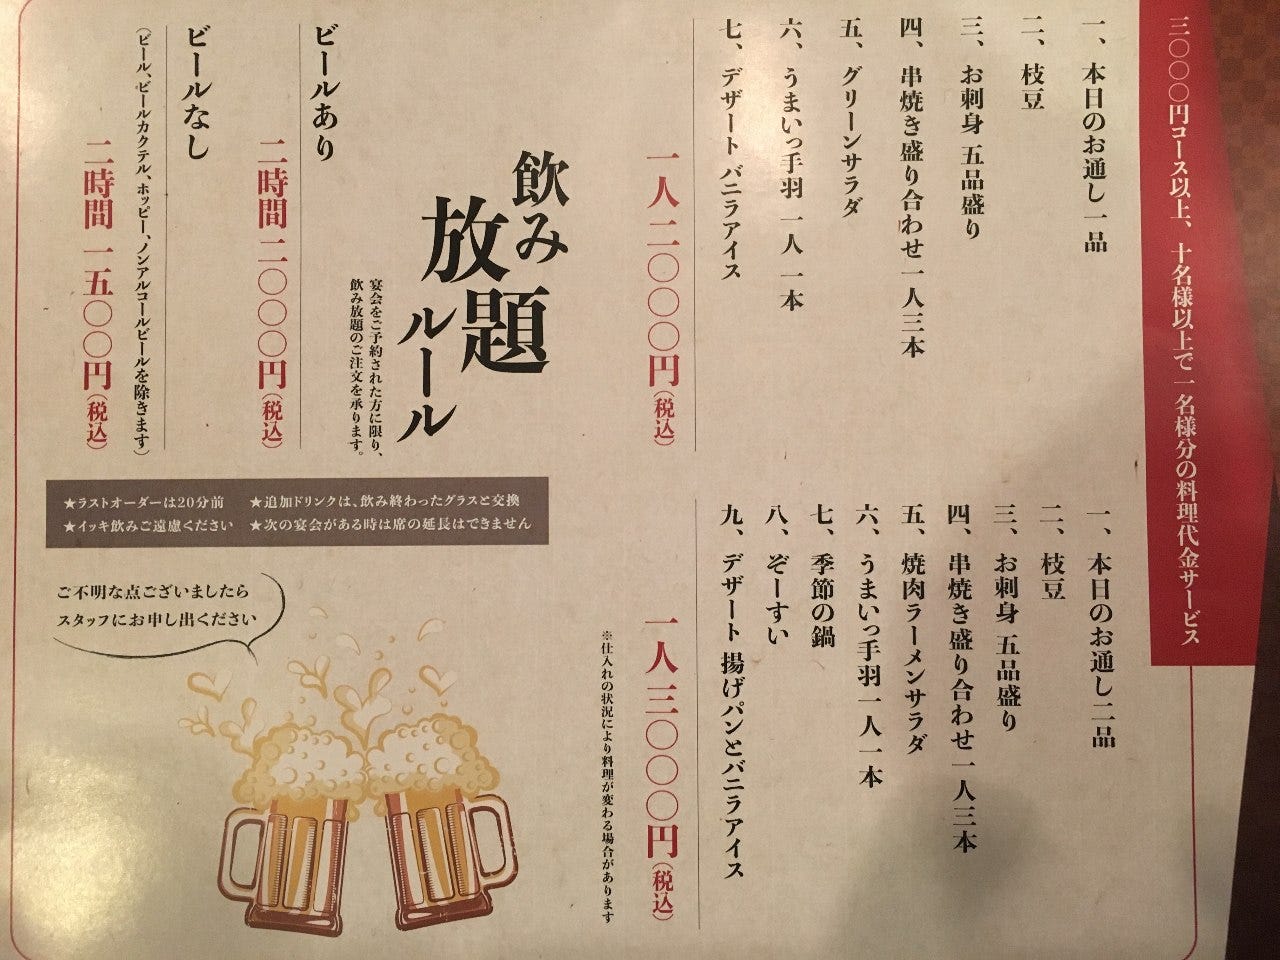 三〇〇〇円コース以上、十名様以上で一名様分の料理代金サービス
一、本日のお通し一品
二、枝豆
三、お刺身 五品盛り
四、串焼き盛り合わせ一人三本
五、グリーンサラダ
六、うまいっ手羽 一人 一本
七、デザート バニラアイス
一人二〇〇〇円(税込)
一、本日のお通し二品
二、枝豆
三、お刺身 五品盛り
四、串焼き盛り合わせ一人三本
五、焼肉ラーメンサラダ
六、うまいっ手羽一人一本
七、季節の鍋
八、ぞーすい
九、デザート 揚げパンとバニラアイス
一人三〇〇〇円(税込)
※仕入れの状況により料理が変わる場合があります
飲み放題ルール
宴会をご予約された方に限り、
飲み放題のご注文を承ります。
ビールあり
二時間 二〇〇〇円(税込)
ビールなし
(ビール、ビールカクテル、ホッピー、ノンアルコールビールを除きます)
二時間 一五〇〇円(税込)
★ラストオーダーは20分前 ★追加ドリンクは、飲み終わったグラスと交換
★イッキ飲みご遠慮ください ★次の宴会がある時は席の延長はできません
ご不明な点ございましたら
スタッフにお申し出ください